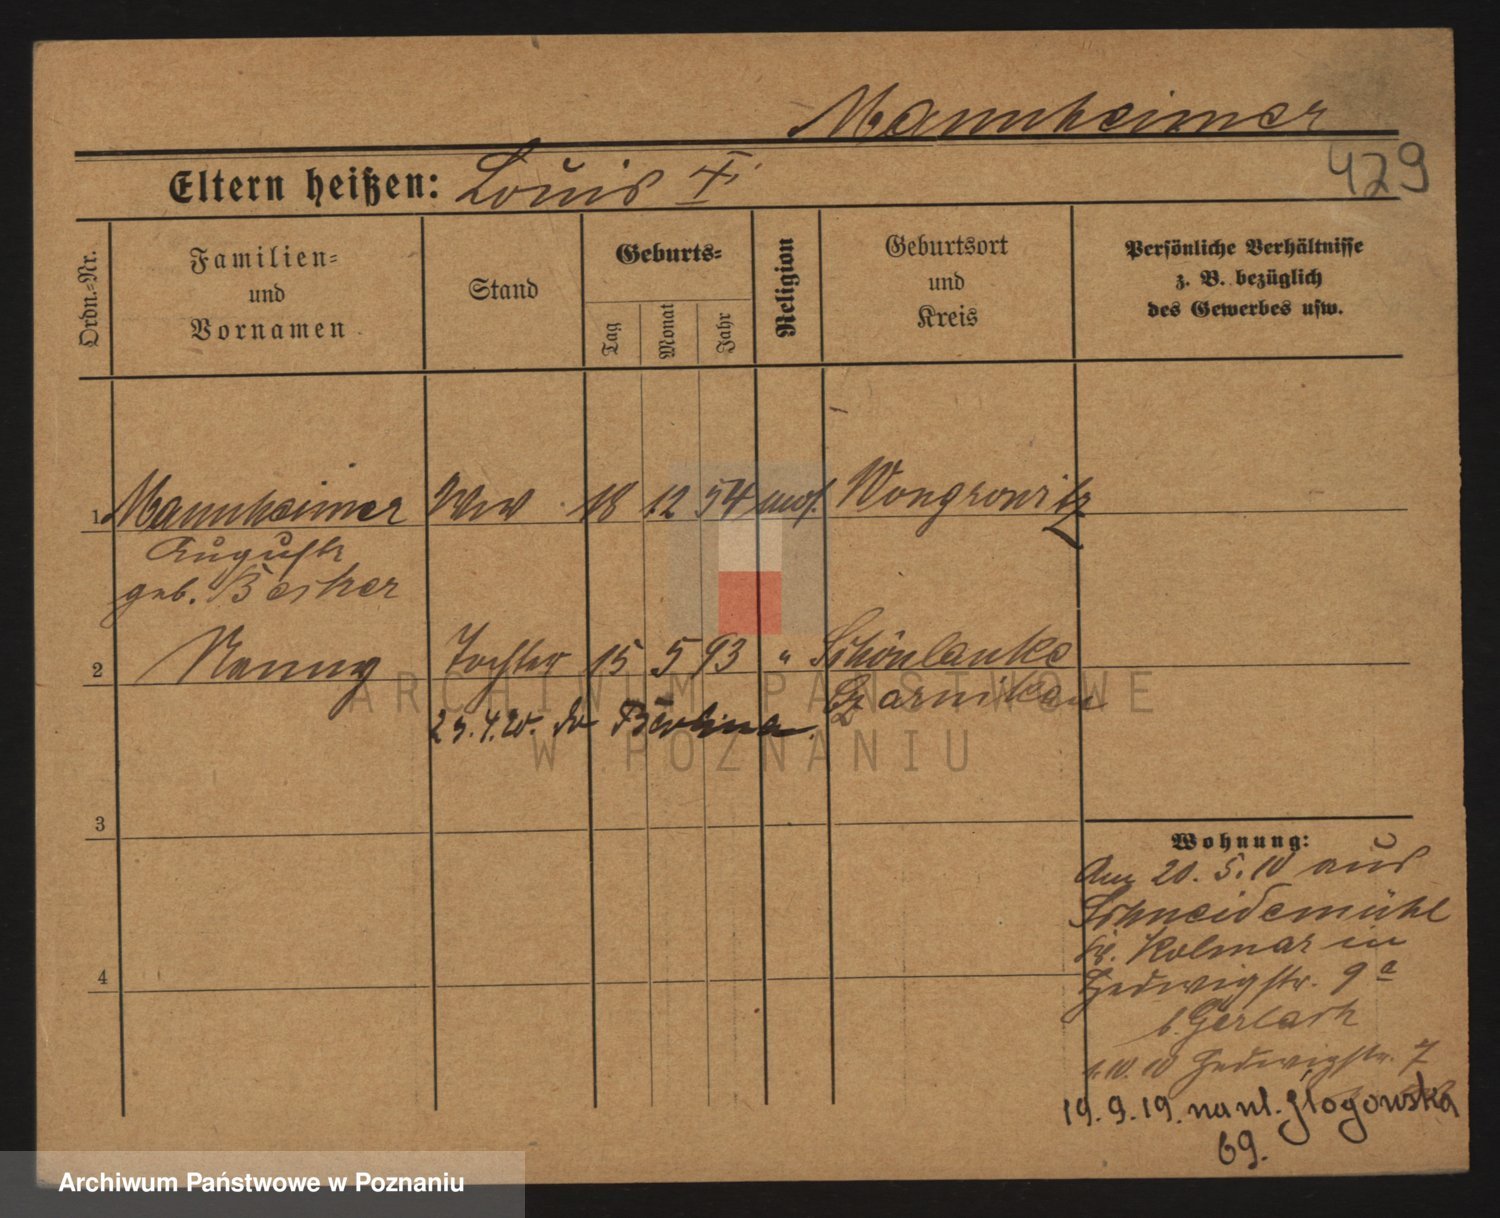 Mannheimer
429
Eltern heißen: Louis
Ordn.-Nr.
Familien-
und
Vornamen
Stand
Geburts-
Tag
Monat
Jahr
Religion
Geburtsort
und
Kreis
Persönliche Verhältnisse
z. B. bezüglich
des Gewerbes usw.
1 Mannheimer Wwe 18 12 54 mos. Wongrowitz
Auguste
geb.
2 Nanny Tochter 15 5 93 " Schönlanke
Czarnikau
do Berlina
3
4
Wohnung:
Am 20. 5. 10 aus
Schneidemühl
Kr. Kolmar in
Hedwigstr. 9a
b. Gerlach
1. 10. 10 Hedwigstr. 7
19. 9. 19. na ul. Głogowska
69.
ARCHIWUM PAŃSTWOWE
W POZNANIU
Archiwum Państwowe w Poznaniu